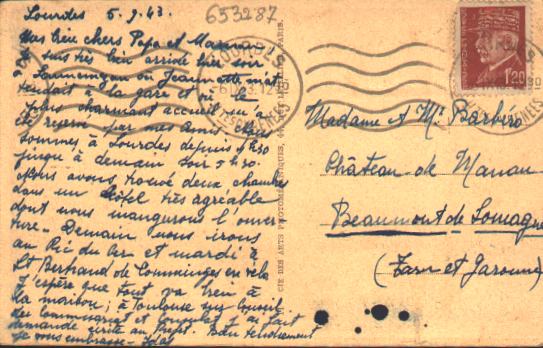 Lourdes 5.9.43.
653287
Mes bien chers Papa et Maman,
suis très bien arrivée hier soir
à Lannemezan où Jeannette m'at
tendait à la gare et où le
plus charmant accueil m'a
été réservé par mes amis. Nous
sommes à Lourdes depuis
jusqu'à demain soir 5 h 30.
Nous avons trouvé deux chambres
dans un hôtel très agréable
dont nous inaugurons l'ouver-
ture. Demain nous irons
au Pic du Ger et mardi à
St Bertrand de Comminges en vélo
J'espère que tout va bien à
la maison; à Toulouse
au fait
demande au Bien tendrement
je vous embrasse.
LOURDES
CIE DES ARTS PHOTOMÉCANIQUES, PARIS.
1f20
Madame & Mr Barbéro
Château de Manau
Beaumont de Lomagne
(Tarn et Garonne)